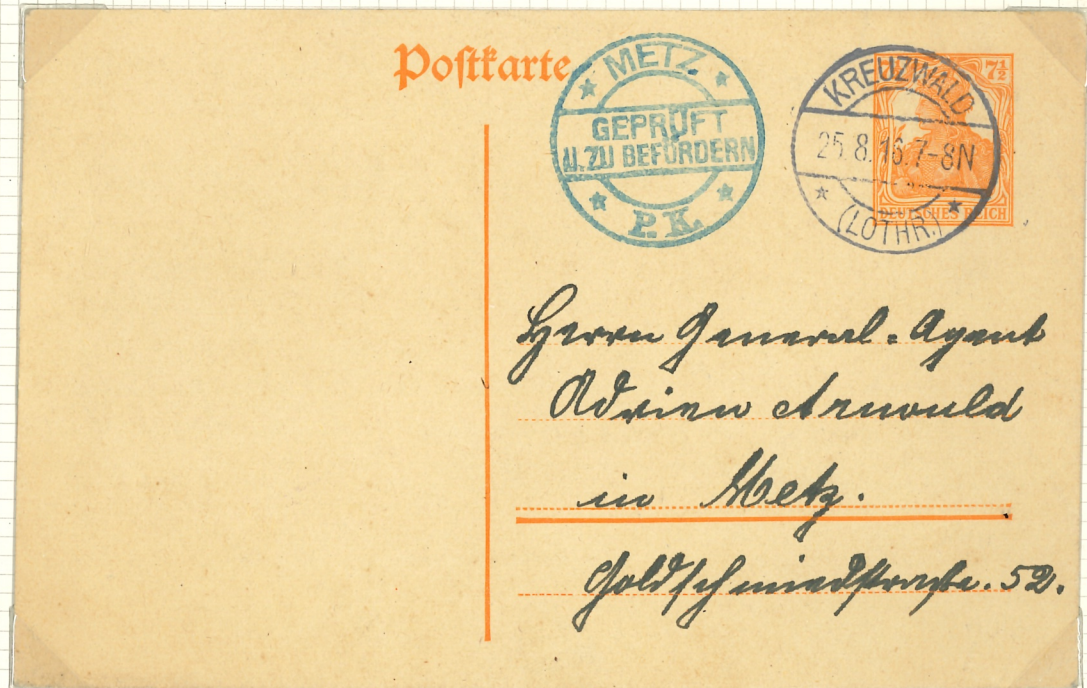 Postkarte
METZ
GEPRÜFT
U. ZU BEFÖRDERN
P.K.
KREUZWALD
25.8.16.7-8N
(LOTHR.)
7½
DEUTSCHES REICH
Herrn General-Agent
Adrien Arnould
in Metz.
Goldschmiedstraße. 52.